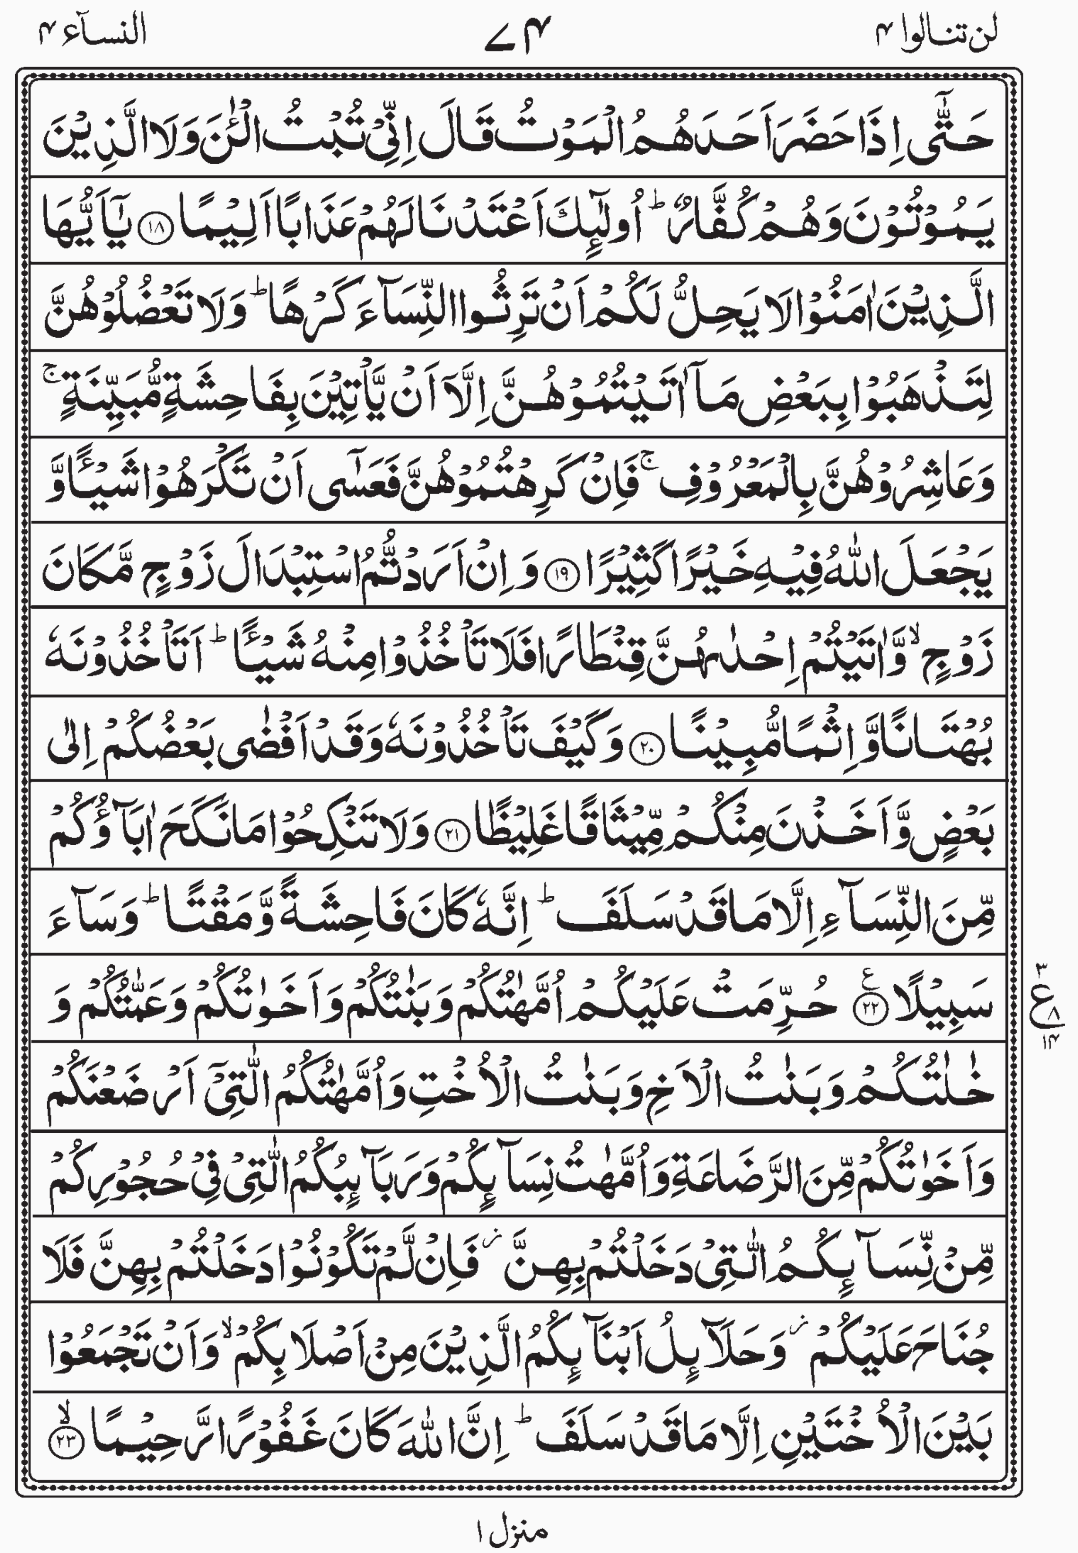 لن تنالوا ۴ ۷۴ النسآء ۴
حَتّٰۤى اِذَا حَضَرَ اَحَدَهُمُ الْمَوْتُ قَالَ اِنِّيْ تُبْتُ الْـٰٔنَ وَلَا الَّذِيْنَ
يَمُوْتُوْنَ وَهُمْ كُفَّارٌ ؕ اُولٰٓئِكَ اَعْتَدْنَا لَهُمْ عَذَابًا اَلِيْمًا ۱۸ يٰۤاَيُّهَا
الَّذِيْنَ اٰمَنُوْا لَا يَحِلُّ لَكُمْ اَنْ تَرِثُوا النِّسَآءَ كَرْهًا ؕ وَلَا تَعْضُلُوْهُنَّ
لِتَذْهَبُوْا بِبَعْضِ مَاۤ اٰتَيْتُمُوْهُنَّ اِلَّاۤ اَنْ يَّاْتِيْنَ بِفَاحِشَةٍ مُّبَيِّنَةٍ ۚ
وَعَاشِرُوْهُنَّ بِالْمَعْرُوْفِ ۚ فَاِنْ كَرِهْتُمُوْهُنَّ فَعَسٰۤى اَنْ تَكْرَهُوْا شَيْـًٔا وَّ
يَجْعَلَ اللّٰهُ فِيْهِ خَيْرًا كَثِيْرًا ۱۹ وَاِنْ اَرَدْتُّمُ اسْتِبْدَالَ زَوْجٍ مَّكَانَ
زَوْجٍ ۙ وَّاٰتَيْتُمْ اِحْدٰىهُنَّ قِنْطَارًا فَلَا تَاْخُذُوْا مِنْهُ شَيْـًٔا ؕ اَتَاْخُذُوْنَهٗ
بُهْتَانًا وَّاِثْمًا مُّبِيْنًا ۲۰ وَكَيْفَ تَاْخُذُوْنَهٗ وَقَدْ اَفْضٰى بَعْضُكُمْ اِلٰى
بَعْضٍ وَّاَخَذْنَ مِنْكُمْ مِّيْثَاقًا غَلِيْظًا ۲۱ وَلَا تَنْكِحُوْا مَا نَكَحَ اٰبَآؤُكُمْ
مِّنَ النِّسَآءِ اِلَّا مَا قَدْ سَلَفَ ؕ اِنَّهٗ كَانَ فَاحِشَةً وَّمَقْتًا ؕ وَسَآءَ
سَبِيْلًا ۲۲ ع حُرِّمَتْ عَلَيْكُمْ اُمَّهٰتُكُمْ وَبَنٰتُكُمْ وَاَخَوٰتُكُمْ وَعَمّٰتُكُمْ وَ
۳ ع ۸ ۱۴
خٰلٰتُكُمْ وَبَنٰتُ الْاَخِ وَبَنٰتُ الْاُخْتِ وَاُمَّهٰتُكُمُ الّٰتِيْۤ اَرْضَعْنَكُمْ
وَاَخَوٰتُكُمْ مِّنَ الرَّضَاعَةِ وَاُمَّهٰتُ نِسَآئِكُمْ وَرَبَآئِبُكُمُ الّٰتِيْ فِيْ حُجُوْرِكُمْ
مِّنْ نِّسَآئِكُمُ الّٰتِيْ دَخَلْتُمْ بِهِنَّ ز فَاِنْ لَّمْ تَكُوْنُوْا دَخَلْتُمْ بِهِنَّ فَلَا
جُنَاحَ عَلَيْكُمْ ز وَحَلَآئِلُ اَبْنَآئِكُمُ الَّذِيْنَ مِنْ اَصْلَابِكُمْ ۙ وَاَنْ تَجْمَعُوْا
بَيْنَ الْاُخْتَيْنِ اِلَّا مَا قَدْ سَلَفَ ؕ اِنَّ اللّٰهَ كَانَ غَفُوْرًا رَّحِيْمًا ۲۳ ۙ
منزل ۱